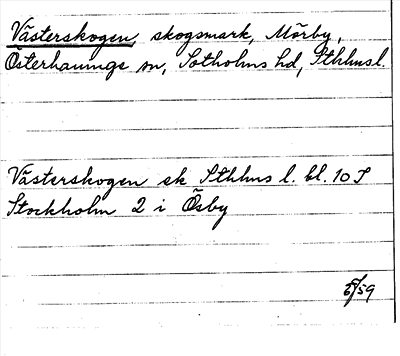 Västerskogen, skogsmark, Mörby,
Österhaninge sn, Sotholms hd, Sthlmsl.
Västerskogen sk Sthlms l. bl. 10 I
Stockholm 2 i Ösby
5/59